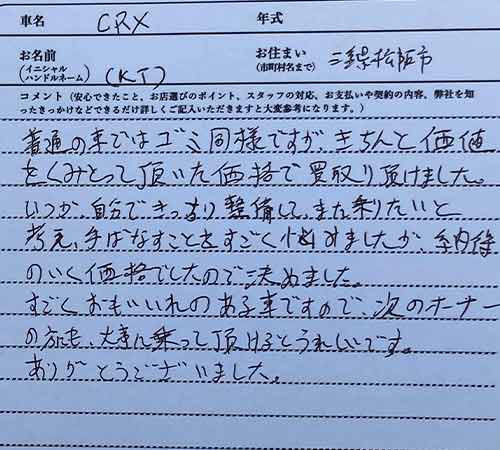 車名 CRX 年式
お名前 (イニシャル ハンドルネーム) (KT) お住まい (市町村名まで) 三重県松阪市
コメント（安心できたこと、お店選びのポイント、スタッフの対応、お支払いや契約の内容、弊社を知
ったきっかけなどできるだけ詳しくご記入いただきますと大変参考になります。）
普通の車ではゴミ同様ですが、きちんと価値
をくみとって頂いた価格で買取り頂けました。
いつか、自分できっちり整備して、また乗りたいと
考え、手ばなすことをすごく悩みましたが、納得
のいく価格でしたので決めました。
すごくおもいいれのある車ですので、次のオーナー
の方にも、大事に乗って頂けるとうれしいです。
ありがとうございました。